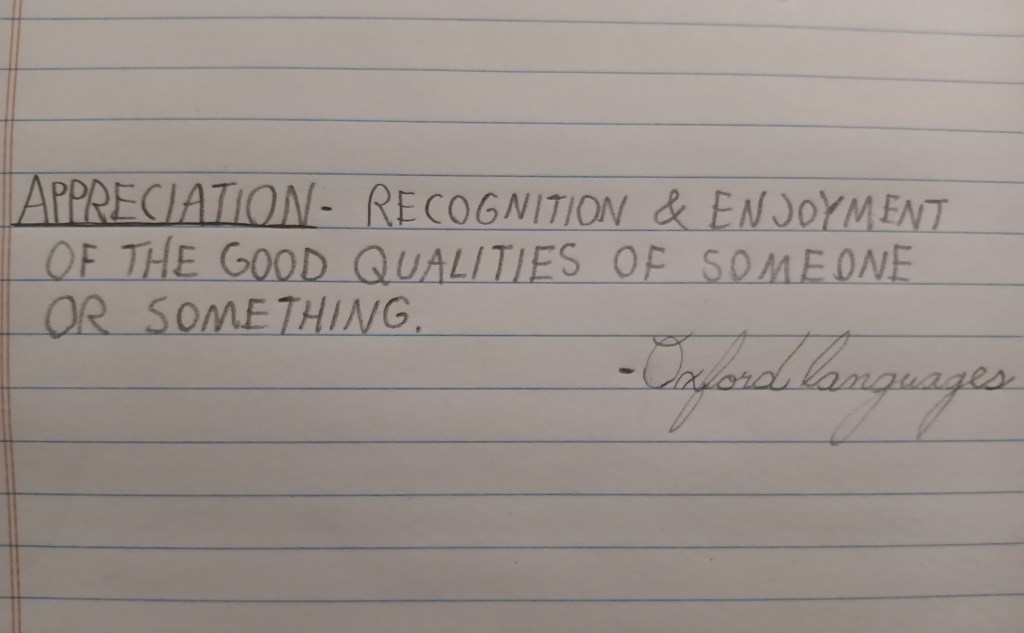 APPRECIATION- RECOGNITION & ENJOYMENT
OF THE GOOD QUALITIES OF SOMEONE
OR SOMETHING.
-Oxford languages